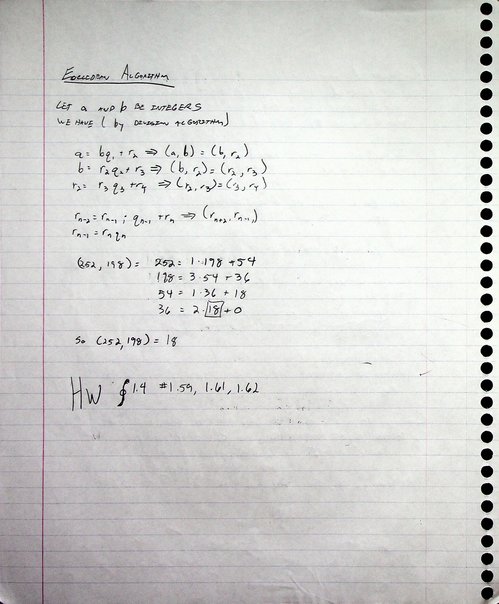 Euclidean Algorithm
Let a and b be integers
We have (by division algorithm)
a = bq₁ + r₂ ⇒ (a, b) = (b, r₂)
b = r₂q₂ + r₃ ⇒ (b, r₂) = (r₂, r₃)
r₂ = r₃q₃ + r₄ ⇒ (r₂, r₃) = (r₃, r₄)
rₙ₋₂ = rₙ₋₁ ; qₙ₋₁ + rₙ ⇒ (rₙ₊₂, rₙ₋₁)
rₙ₋₁ = rₙqₙ
(252, 198) = 252 = 1·198 + 54
198 = 3·54 + 36
54 = 1·36 + 18
36 = 2·18 + 0
So (252, 198) = 18
HW § 1.4 #1.59, 1.61, 1.62